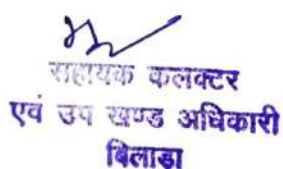 सहायक कलक्टर
एवं उप खण्ड अधिकारी
बिलाडा